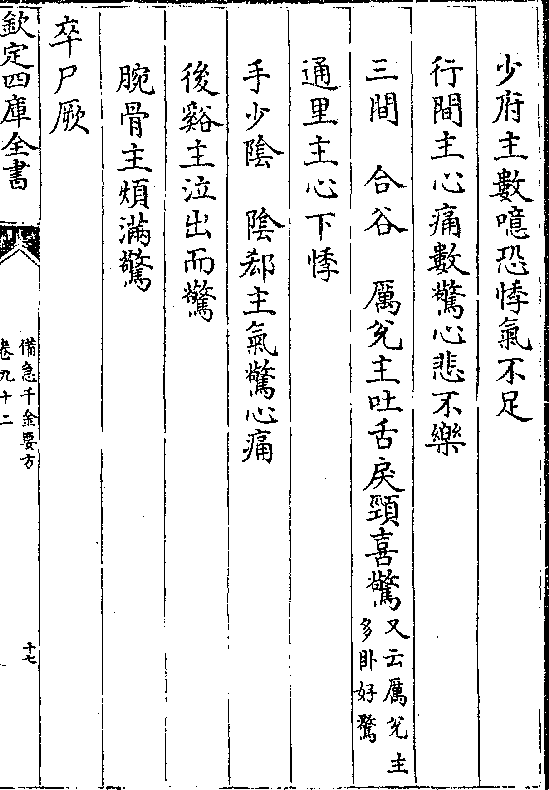 少府主數噫恐悸氣不足
行間主心痛數驚心悲不樂
三間　合谷　厲兊主吐舌戾頸喜驚又云厲兊主多卧好驚
通里主心下悸
手少陰　陰郄主氣驚心痛
後谿主泣出而驚
腕骨主煩滿驚
卒尸厥
欽定四庫全書
備急千金要方
卷九十二
十七